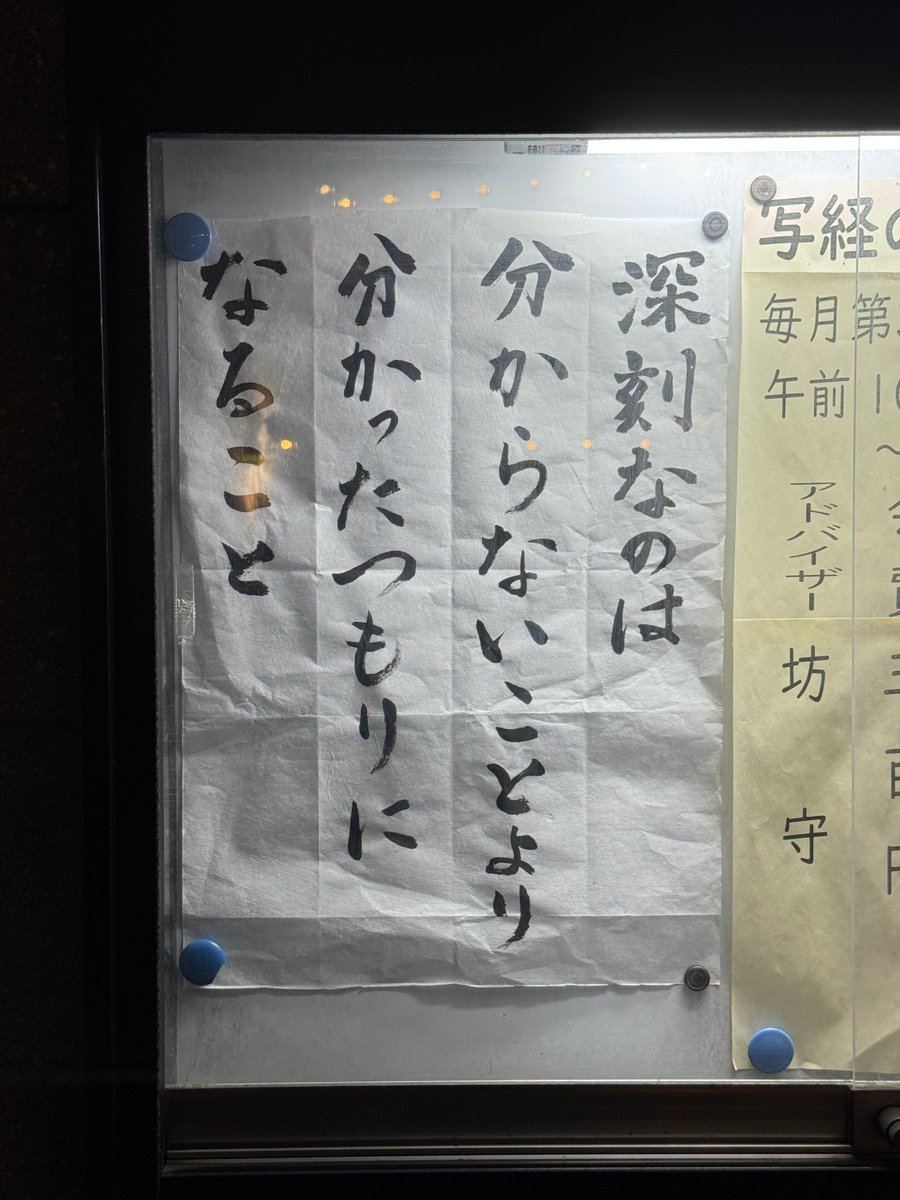 深刻なのは
分からないことより
分かったつもりに
なること
写経の
毎月第
午前 10
～
会費三百円
アドバイザー 坊守